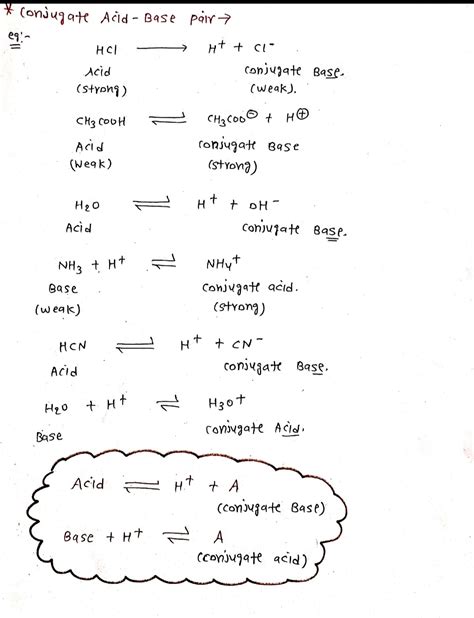 * Conjugate Acid - Base pair →
eg:-
HCl ⟶ H+ + Cl-
Acid Conjugate Base.
(strong) (weak).
CH3COOH ⇌ CH3COO⊖ + H⊕
Acid Conjugate Base
(weak) (strong)
H2O ⇌ H+ + OH-
Acid Conjugate Base.
NH3 + H+ ⇌ NH4+
Base Conjugate acid.
(weak) (strong)
HCN ⇌ H+ + CN-
Acid Conjugate Base.
H2O + H+ ⇌ H3O+
Base Conjugate Acid.
Acid ⇌ H+ + A
(Conjugate Base)
Base + H+ ⇌ A
(Conjugate acid)